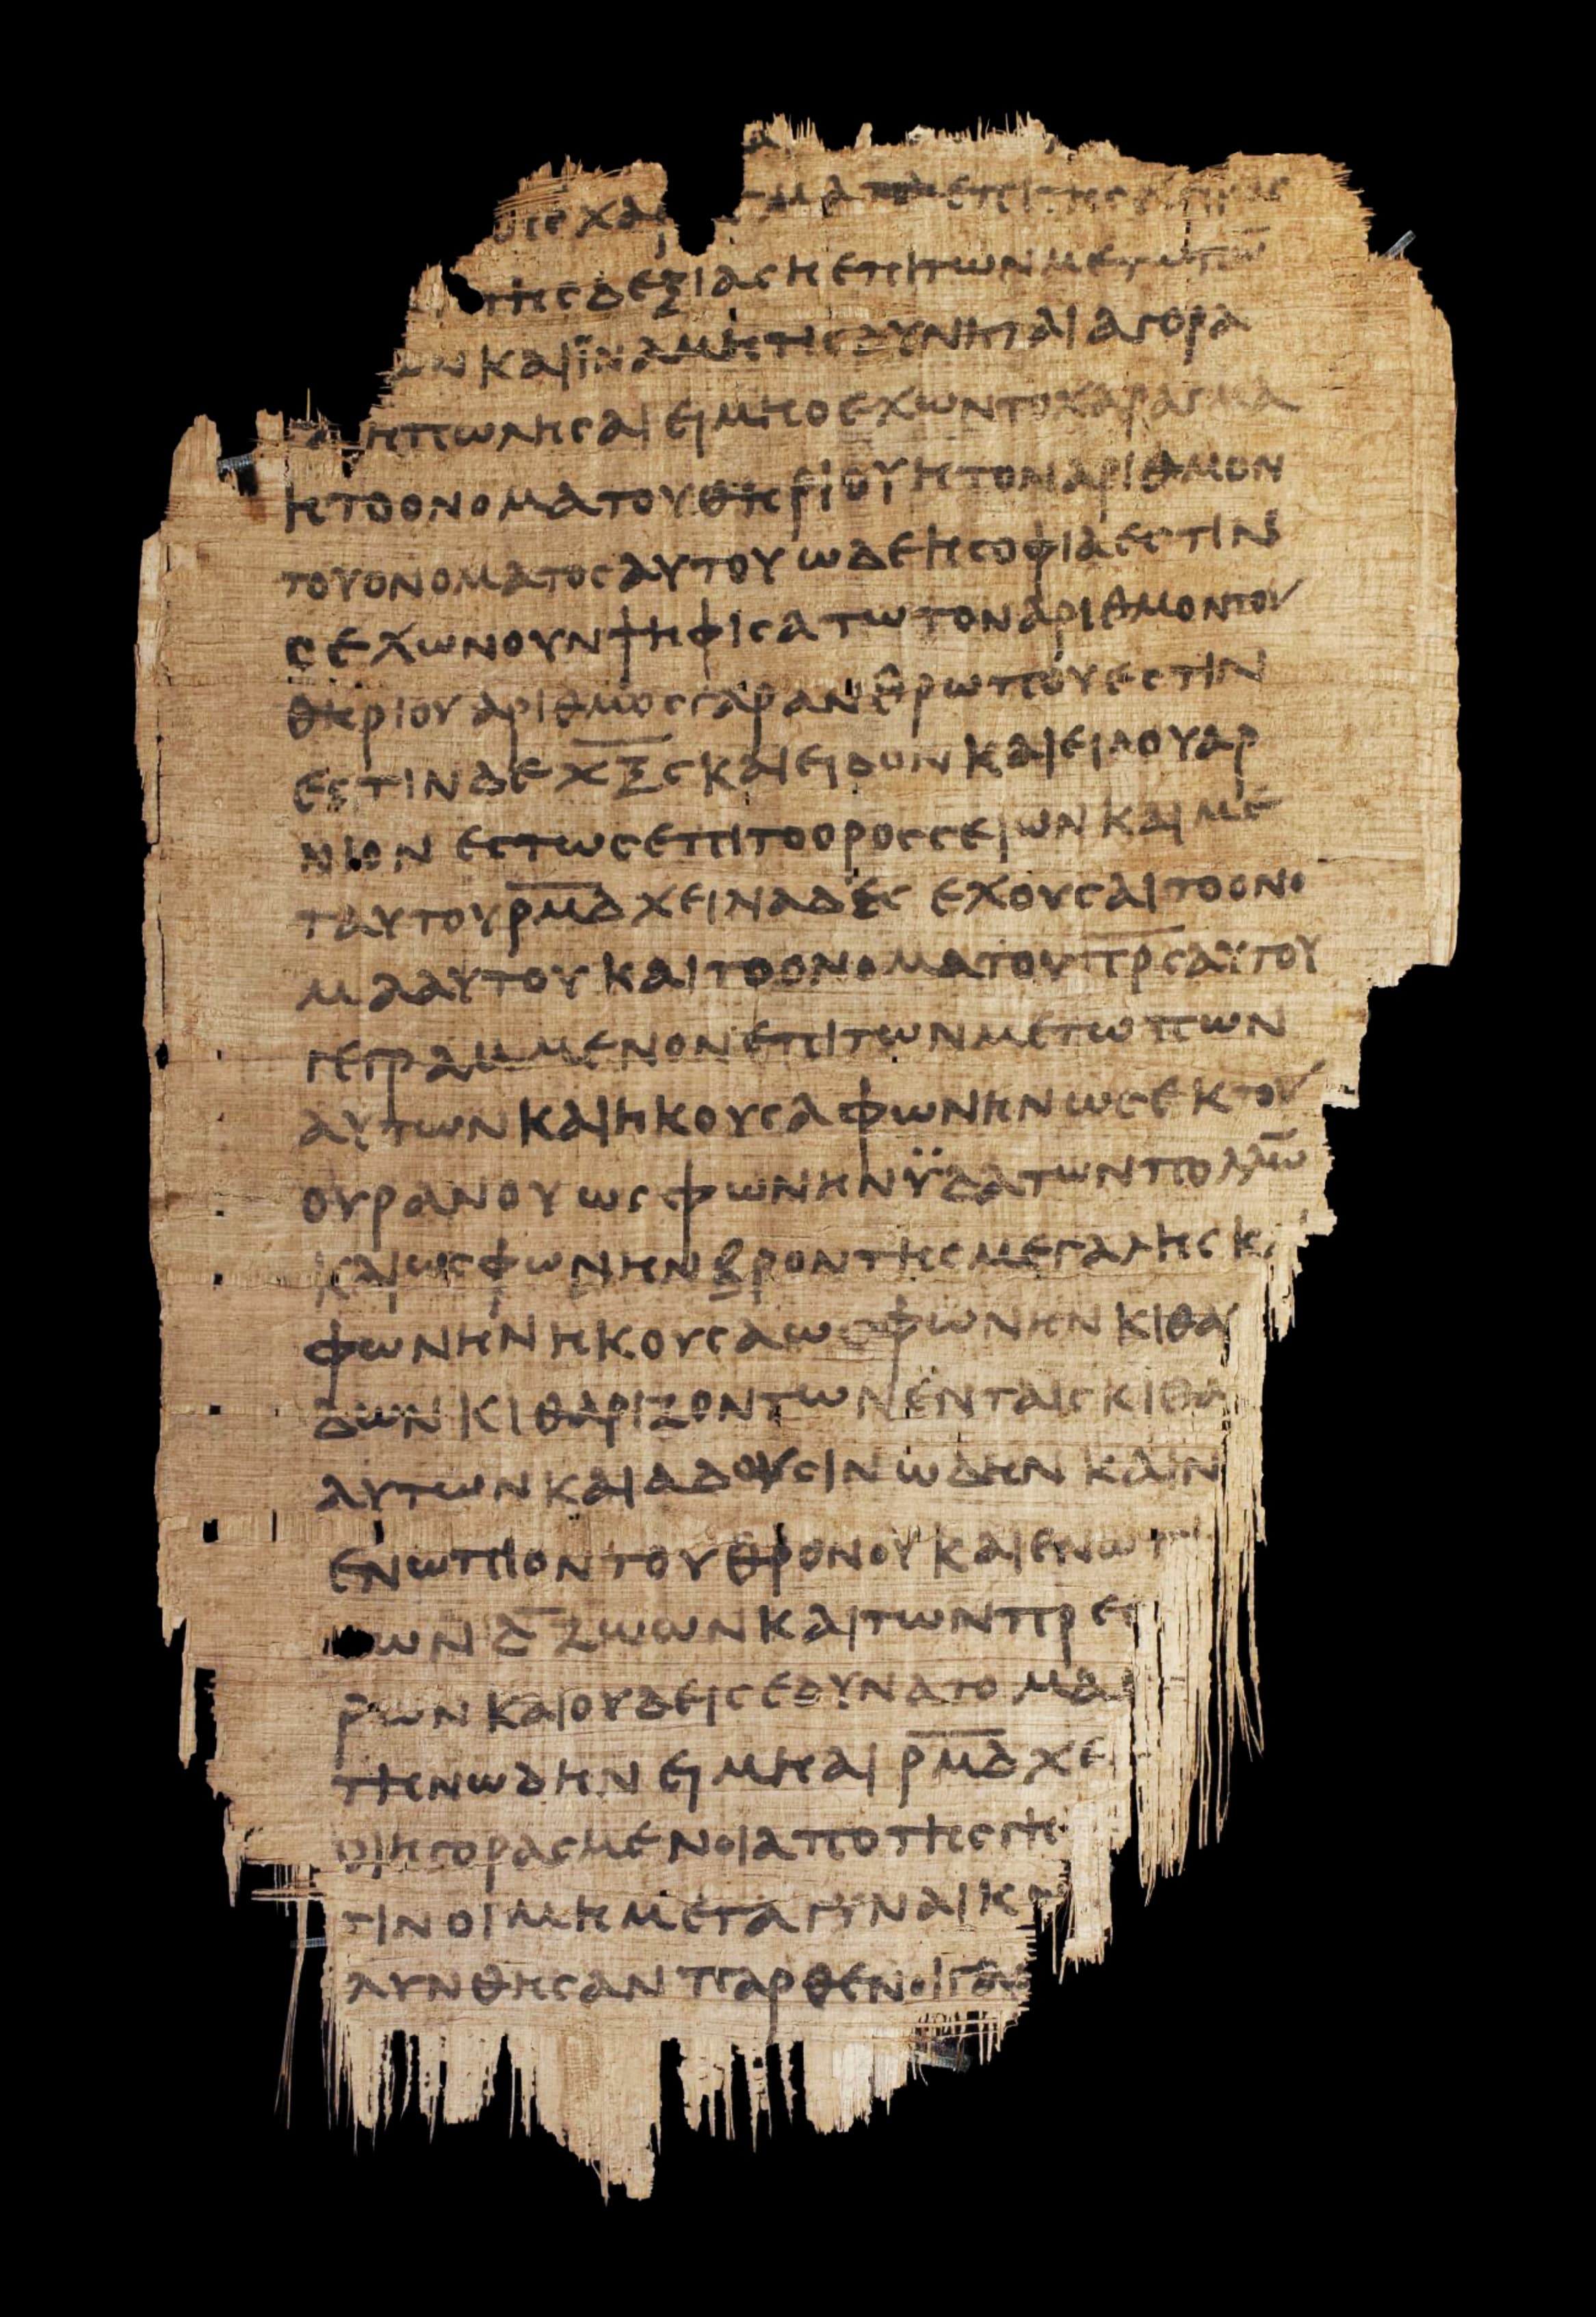 χαρ γματα επι της χειρος
της δεξιας η επι των μετωπω̅
ων και ϊνα μη τις δυνηται αγορα
η πωλησαι ει μη ο εχων το χαραγμα
η το ονομα του θηριου η τον αριθμον
του ονοματος αυτου ωδε η σοφια εστιν
ο εχων νουν ψηφισατω τον αριθμον του
θηριου αριθμος γαρ ανθρωπου εστιν
εστιν δε χ̅ξ̅ϛ̅ και ειδον και ειδου αρ
νιον εστως επι το ορος σειων και με
τ αυτου ρ̅μ̅δ̅ χειλιαδες εχουσαι το ονο
μα αυτου και το ονομα του π̅ρ̅ς̅ αυτου
γεγραμμενον επι των μετωπων
αυτων και ηκουσα φωνην ως εκ του
ουρανου ως φωνην ϋδατων πολλω̅
και ως φωνην βροντης μεγαλης κα
φωνην ηκουσα ως φωνην κιθα
δων κιθαριζοντων εν ταις κιθα
αυτων και αδουσιν ωδην καιν
ενωπιον του θρονου και ενωπι
των δ̅ ζωων και των πρεσ
ρων και ουδεις εδυνατο μα
την ωδην ει μη αι ρ̅μ̅δ̅ χει
οι ηγορασμενοι απο της γη
τιν οι μη μετα γυναικ
λυνθησαν παρθενοι γαρ